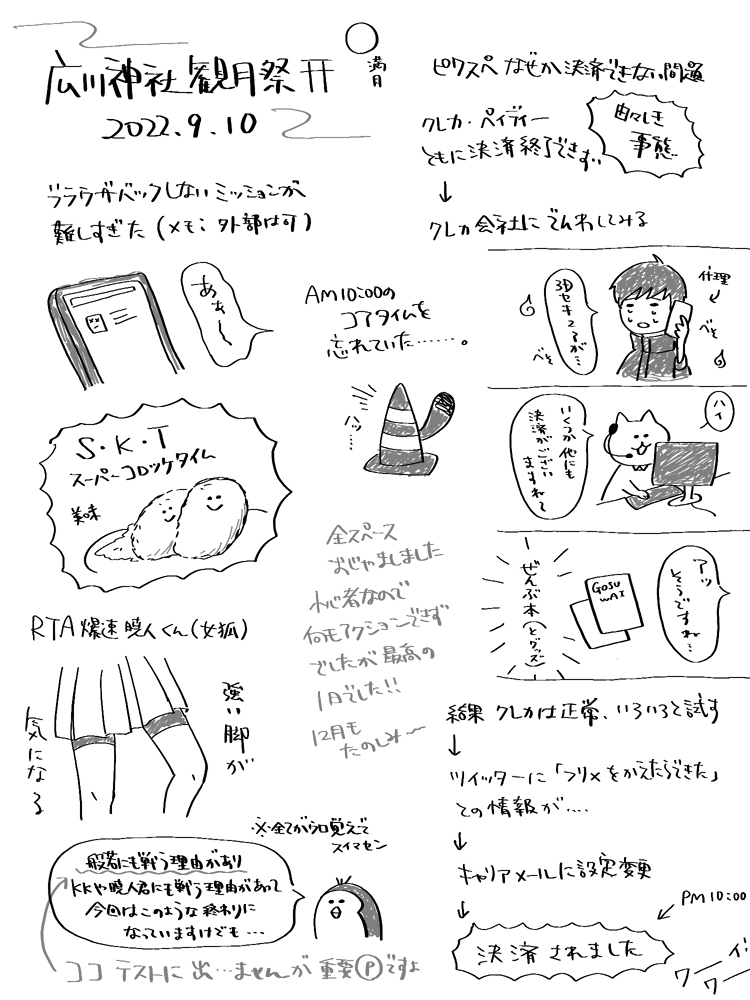 広川神社観月祭
満月
2022.9.10
ブラウザバックしないミッションが
難しすぎた(メモ:外部は可)
あぁ〜
AM10:00の
コアタイムを
忘れていた……。
ハッ…
S・K・T
スーパーコロッケタイム
美味
全スペース
おじゃましました
初心者なので
何もアクションできず
でしたが最高の
1日でした!!
12月も
たのしみ〜
RTA爆速暁人くん(女狐)
強い脚が
気になる
※全てがうろ覚えで
スイマセン
般若にも戦う理由があり
KKや暁人君にも戦う理由があって
今回はこのような終わりに
なっていますけども…
ココ テストに出…ませんが 重要Ⓟですよ
ピクスペなぜか決済できない問題
由々しき
事態
クレカ・ペイディー
ともに決済終了できず..
↓
クレカ会社にでんわしてみる
代理
3Dセキュアが…
べそ
べそ
ハイ
いくつか他にも
決済がござい
ますねぇ
アッ
そうですね…
GOSU
WAI
ぜんぶ本(とグッズ)
結果 クレカは正常、いろいろと試す
↓
ツイッターに「フリメをかえたらできた」
との情報が….
↓
キャリアメールに設定変更
↓
PM10:00
決済されました
ワー
ワー